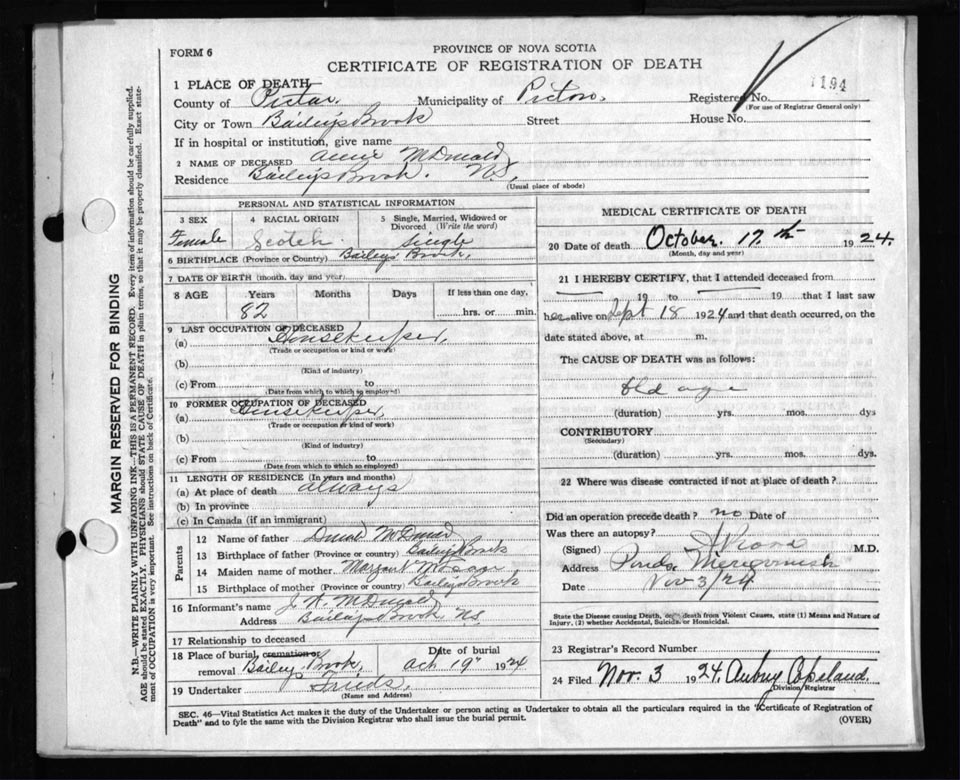 FORM 6
PROVINCE OF NOVA SCOTIA
CERTIFICATE OF REGISTRATION OF DEATH
1194
1 PLACE OF DEATH
County of Pictou. Municipality of Pictou. Registered No.
(For use of Registrar General only)
City or Town Bailey's Brook Street House No.
If in hospital or institution, give name
2 NAME OF DECEASED Annie McDonald
Residence Bailey's Brook. N.S.
(Usual place of abode)
PERSONAL AND STATISTICAL INFORMATION
3 SEX 4 RACIAL ORIGIN 5 Single, Married, Widowed or Divorced (Write the word)
Female Scotch Single
6 BIRTHPLACE (Province or Country) Baileys Brook,
7 DATE OF BIRTH (month, day and year)
8 AGE Years Months Days If less than one day,
82 hrs. or min.
9 LAST OCCUPATION OF DECEASED
(a) Housekeeper,
(Trade or occupation or kind or work)
(b)
(Kind of industry)
(c) From to
(Date from which to which so employed)
10 FORMER OCCUPATION OF DECEASED
(a) Housekeeper
(Trade or occupation or kind of work)
(b)
(Kind of industry)
(c) From to
(Date from which to which so employed)
11 LENGTH OF RESIDENCE (In years and months)
(a) At place of death always
(b) In province
(c) In Canada (if an immigrant)
Parents
12 Name of father Donald McDonald
13 Birthplace of father (Province or country) Baileys Brook
14 Maiden name of mother Margaret
15 Birthplace of mother (Province or country) Baileys Brook
16 Informant's name McDonald
Address Baileys Brook N.S.
17 Relationship to deceased
18 Place of burial, cremation or removal Bailey Brook, Date of burial Oct 19" 1924
19 Undertaker Frieds,
(Name and Address)
MEDICAL CERTIFICATE OF DEATH
20 Date of death October. 17th 1924.
(Month, day and year)
21 I HEREBY CERTIFY, that I attended deceased from
19 to 19 that I last saw
her alive on Sept 18 1924 and that death occurred, on the
date stated above, at m.
The CAUSE OF DEATH was as follows:
Old age
(duration) yrs. mos. dys
CONTRIBUTORY
(Secondary)
(duration) yrs. mos. dys.
22 Where was disease contracted if not at place of death?
Did an operation precede death? no Date of
Was there an autopsy?
(Signed) M.D.
Address
Date Nov 3/24
State the Disease causing Death, or death from Violent Causes, state (1) Means and Nature of
Injury, (2) whether Accidental, Suicidal or Homicidal.
23 Registrar's Record Number
24 Filed Nov. 3 1924. Aubrey Copeland.
Division Registrar
SEC. 46—Vital Statistics Act makes it the duty of the Undertaker or person acting as Undertaker to obtain all the particulars required in the "Certificate of Registration of
Death" and to fyle the same with the Division Registrar who shall issue the burial permit.
(OVER)
MARGIN RESERVED FOR BINDING
N.B.—WRITE PLAINLY WITH UNFADING INK—THIS IS A PERMANENT RECORD. Every item of information should be carefully supplied.
AGE should be stated EXACTLY. PHYSICIANS should STATE CAUSE OF DEATH in plain terms, so that it may be properly classified. Exact state-
ment of OCCUPATION is very important. See instructions on back of Certificate.